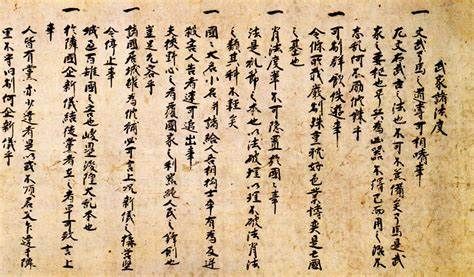 武家諸法度
一 文武弓馬之道専可相嗜事
左文右武古之法也不可不兼備矣弓馬是武
家之要枢也号兵為凶器不得已而用之治不
忘乱何不励修錬乎
一 可制群飲佚遊事
令條所載厳制殊重耽好色業博奕是亡国
之基也
一 背法度輩不可隠置於国々事
法是礼節之本也以法破理以理不破法背法
之類其科不軽矣
一 国々大名小名并諸給人各相抱士卒有為反逆
殺害人告者速可追出事
夫挟野心之者為覆国家之利器絶人民之鋒剣也
豈足允容乎
一 諸国居城雖為修補必可言上况新儀之構営堅
令停止事
城過百雉国之害也峻塁浚隍大乱本也
一 於隣国企新儀結徒党者有之者早可致言上
事
人皆有党亦少達者是以或不順君父乍違于隣
里不守旧制何企新儀乎